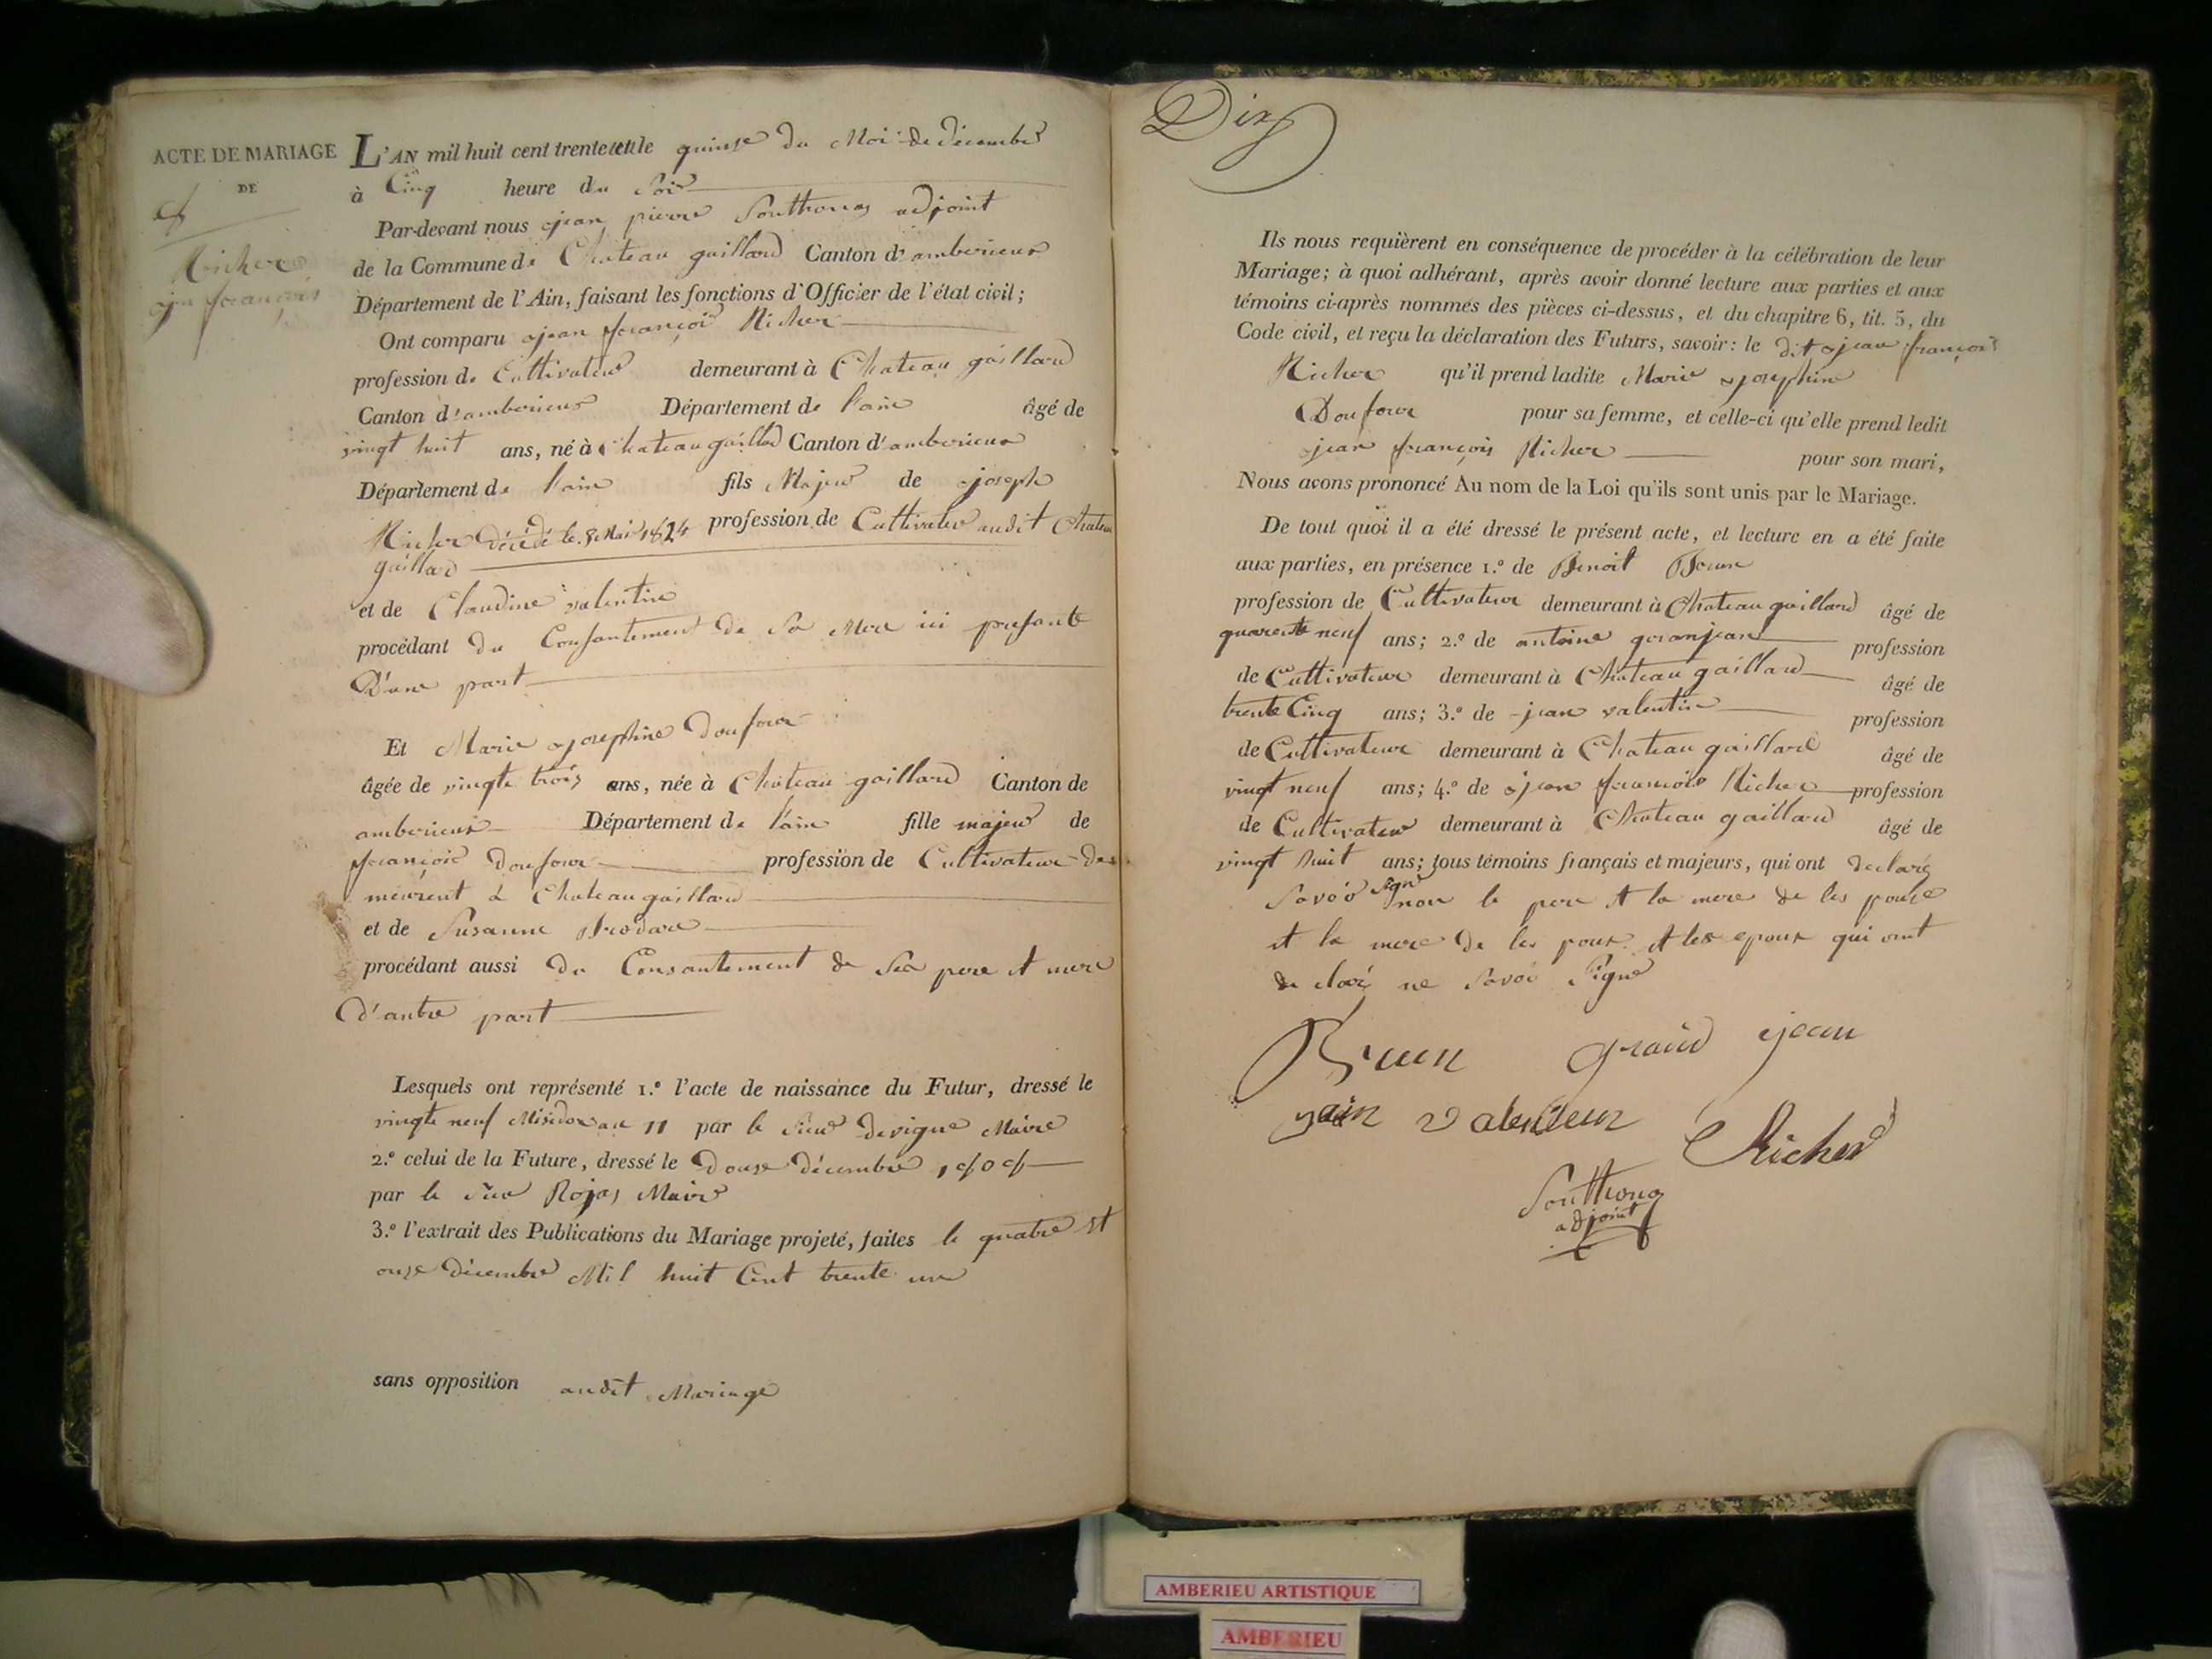 ACTE DE MARIAGE
DE
Richer
jean françois
L'AN mil huit cent trente et un le quinse du Moi de décembre
à Cinq heure du Soir
Par-devant nous jean pierre Southonas adjoint
de la Commune de Chateau gaillard Canton d'amberieux
Département de l'Ain, faisant les fonctions d'Officier de l'état civil;
Ont comparu jean françois Richer
profession de Cultivateur demeurant à Chateau gaillard
Canton d'amberieux Département de l'ain âgé de
vingt huit ans, né à Chateau gaillard Canton d'amberieux
Département de l'ain fils Majeur de joseph
Richer décédé le 8 Mai 1824 profession de Cultivateur audit Chateau
gaillard
et de Claudine valentin
procédant du Consantement de Sa Mere ici presante
D'une part
Et Marie josephine Doufour
âgée de vingte trois ans, née à Chateau gaillard Canton de
amberieux Département de l'ain fille majeur de
françois doufour profession de Cultivateur de
meurent à Chateau gaillard
et de Susanne Brodard
procédant aussi du Consantement de Sea pere et mere
D'autre part
Lesquels ont représenté 1.º l'acte de naissance du Futur, dressé le
vingte neuf Misidor an 11 par le Sieur devigne Maire
2.º celui de la Future, dressé le Douse décembre 1808
par le Sieur Rojas Maire
3.º l'extrait des Publications du Mariage projeté, faites le quatre et
onze décembre Mil huit Cent trente un
sans opposition audit Mariage
Dix
Ils nous requièrent en conséquence de procéder à la célébration de leur
Mariage; à quoi adhérant, après avoir donné lecture aux parties et aux
témoins ci-après nommés des pièces ci-dessus, et du chapitre 6, tit. 5, du
Code civil, et reçu la déclaration des Futurs, savoir: le dit jean françois
Richer qu'il prend ladite Marie josephine
Doufour pour sa femme, et celle-ci qu'elle prend ledit
jean françois Richer pour son mari,
Nous avons prononcé Au nom de la Loi qu'ils sont unis par le Mariage.
De tout quoi il a été dressé le présent acte, et lecture en a été faite
aux parties, en présence 1.º de Benoit Brun
profession de Cultivateur demeurant à Chateau gaillard âgé de
quarente neuf ans; 2.º de antoine granjean profession
de Cultivateur demeurant à Chateau gaillard âgé de
trente Cinq ans; 3.º de jean valentin profession
de Cultivateur demeurant à Chateau gaillard âgé de
vingt neuf ans; 4.º de jean françois Richer profession
de Cultivateur demeurant à Chateau gaillard âgé de
vingt huit ans; tous témoins français et majeurs, qui ont declaré
Savoir Signé non le pere et la mere de les pouse
et la mere de les poux et les epoux qui ont
de claré ne Savoir Signé
Brun grand jean
valenteun Richer
Southonas
adjoint
AMBERIEU ARTISTIQUE
AMBERIEU